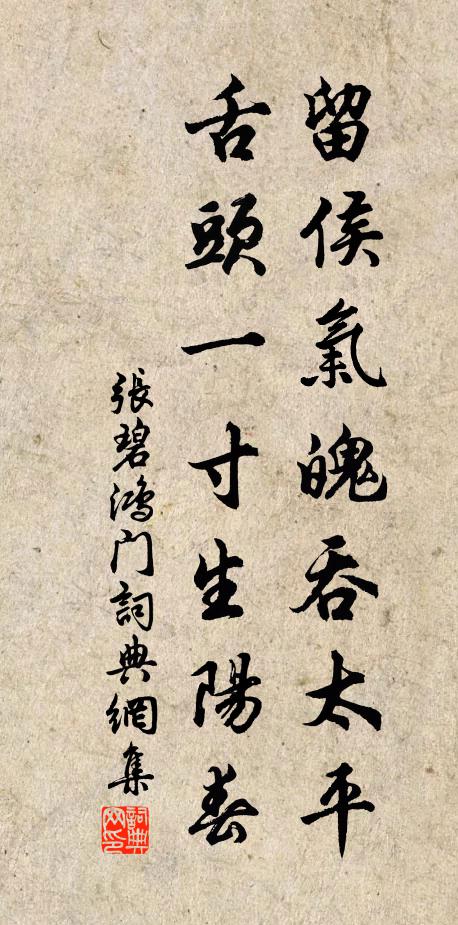 留侯氣魄吞太平
舌頭一寸生陽春
張碧鴻门詞典網集
詞典
网印